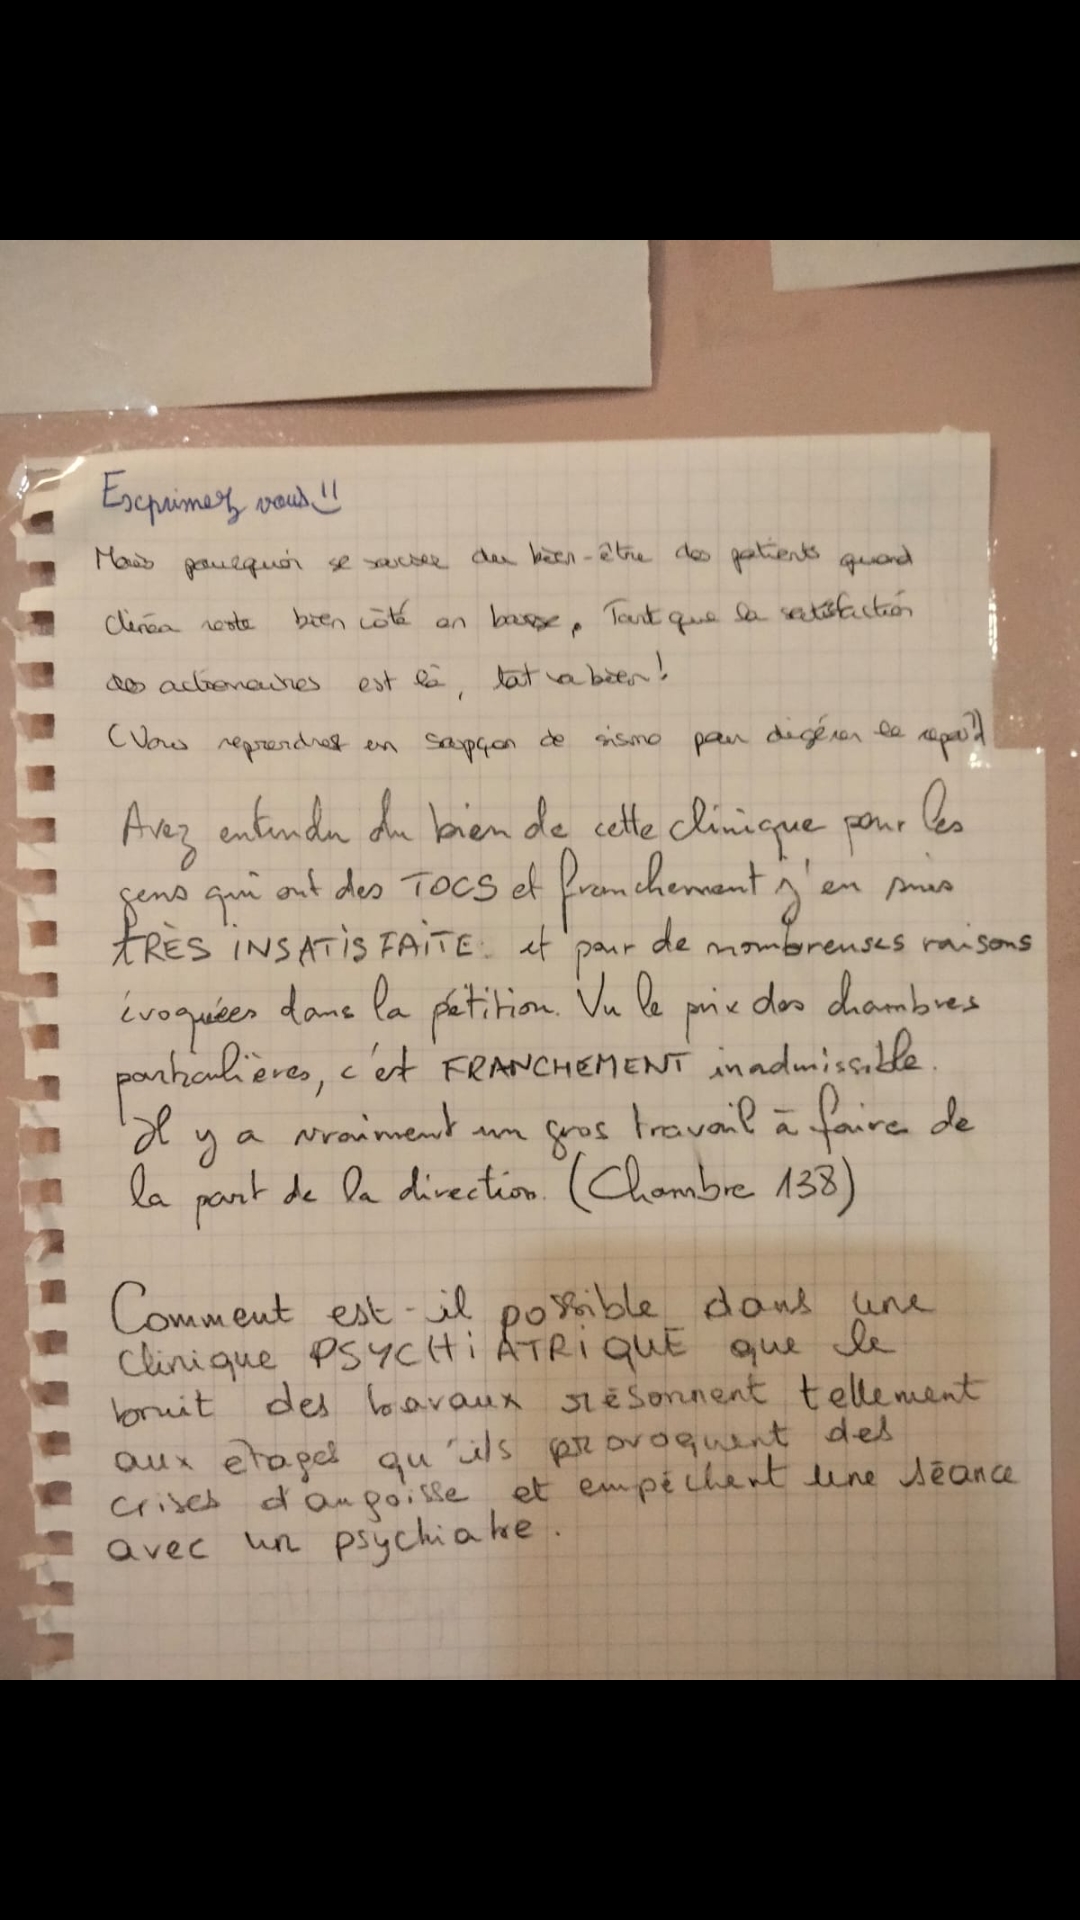 Exprimez vous !!
Mais pourquoi se soucier du bien-être des patients quand
clinéa reste bien côté en bourse. Tant que la satisfaction
des actionnaires est là, tout va bien !
(Vous reprendrez un soupçon de sismo pour digérer le repas ?)
Avez entendu du bien de cette clinique pour les
gens qui ont des TOCS et franchement j'en suis
TRÈS INSATISFAITE. et pour de nombreuses raisons
évoquées dans la pétition. Vu le prix des chambres
particulières, c'est FRANCHEMENT inadmissible.
Il y a vraiment un gros travail à faire de
la part de la direction. (Chambre 138)
Comment est-il possible dans une
clinique PSYCHIATRIQUE que le
bruit des travaux résonnent tellement
aux etages qu'ils provoquent des
crises d'angoisse et empéchent une séance
avec un psychiatre.